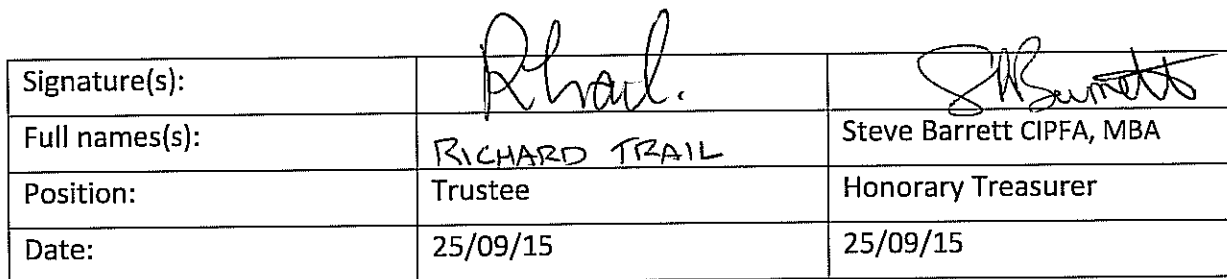 Signature(s): RTrail. SABarrett
Full names(s): RICHARD TRAIL Steve Barrett CIPFA, MBA
Position: Trustee Honorary Treasurer
Date: 25/09/15 25/09/15